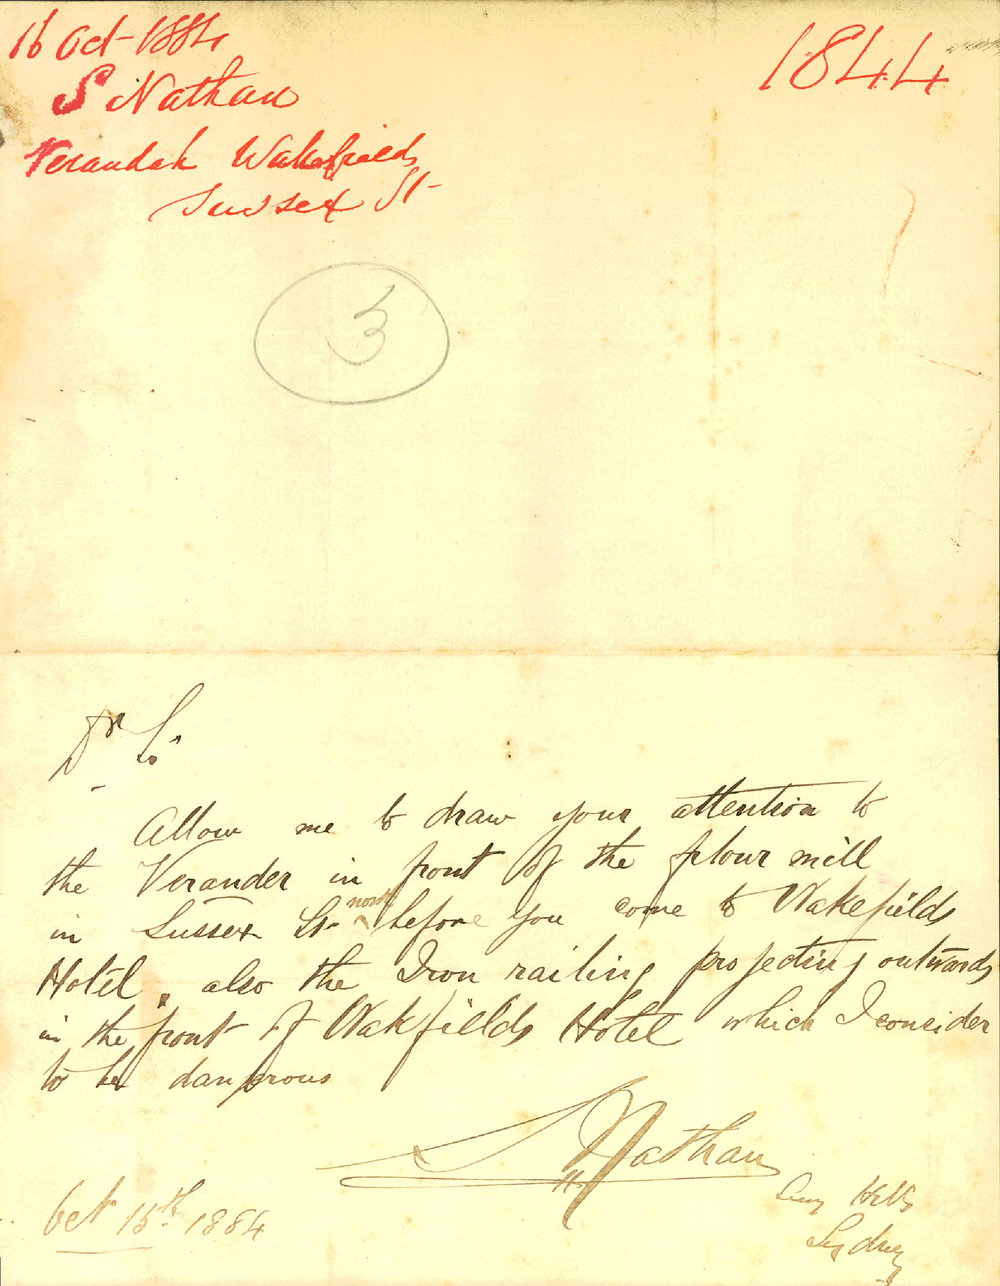 16 Oct 1884
1844
S Nathan
Verandah Wakefields
Sussex St
3
Dr Sr
Allow me to draw your attention to
the Verander in front of the flour mill
in Sussex St north before you come to Wakefields
Hotel, also the Iron railing projecting outwards
in the front of Wakfields Hotel which I consider
to be dangrous
S Nathan
Oct 15th 1884
Sydney